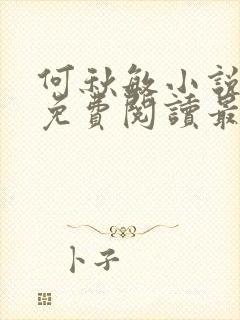 何秋敏小說
免費閱讀最
卜子